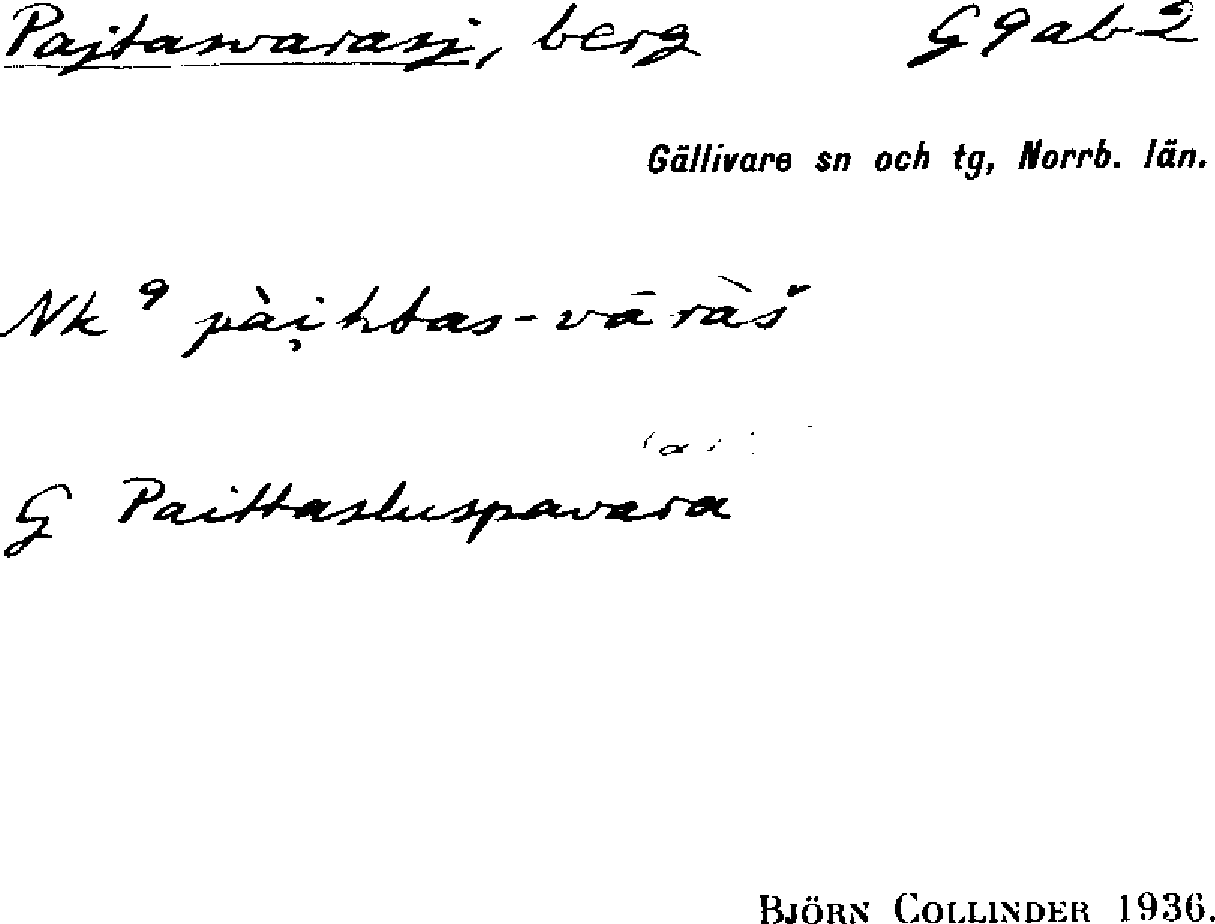 Pajtasvarasj, berg G 9 ab 2
Gällivare sn och tg, Norrb. län.
Nk 9 pài̯htas-vāràš
G Paittasluspavara
BJÖRN COLLINDER 1936.